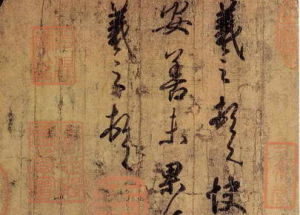 羲之頓首快
安善未果
羲之頓首